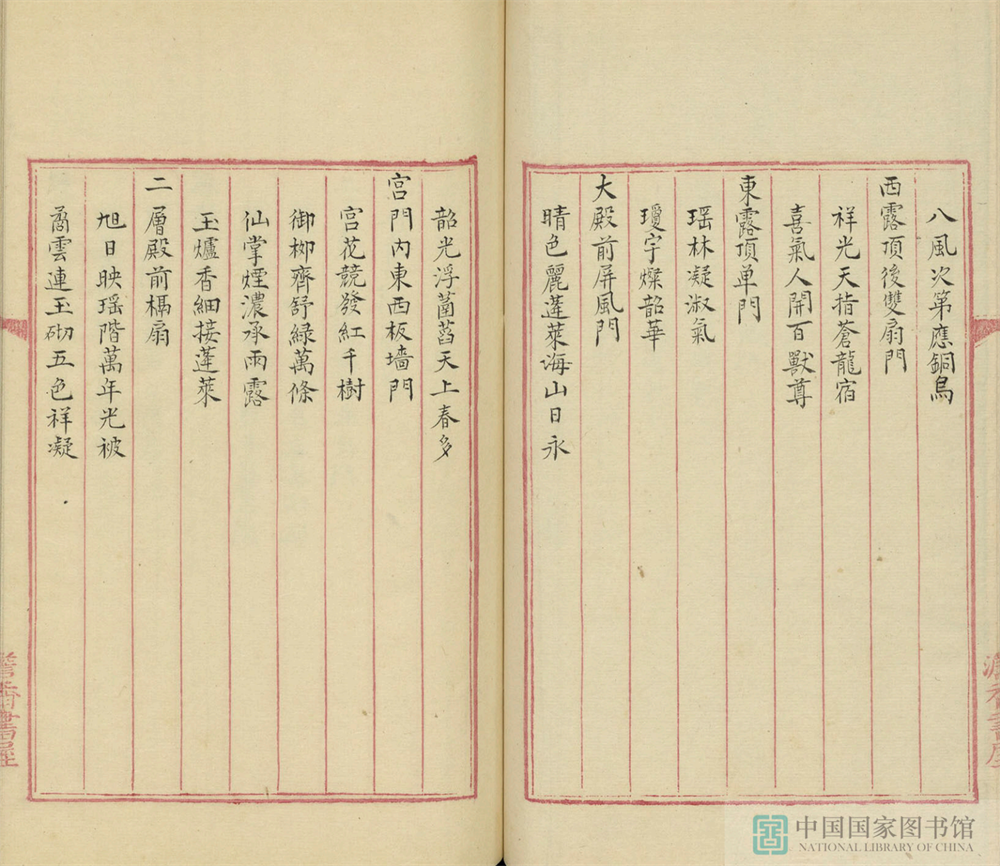 八風次第應銅烏
西露頂後雙扇門
祥光天指蒼龍宿
喜氣人開百獸尊
東露頂单門
瑶林凝淑氣
瓊宇燦韶華
大殿前屏風門
晴色麗蓬萊海山日永
韶光浮菡萏天上春多
宫門內東西板墻門
宫花競發紅千樹
御栁齊舒綠萬條
仙掌煙濃承雨露
玉爐香細接蓬萊
二層殿前槅扇
旭日映瑶階萬年光被
矞雲連玉砌五色祥凝
中国国家图书馆
NATIONAL LIBRARY OF CHINA